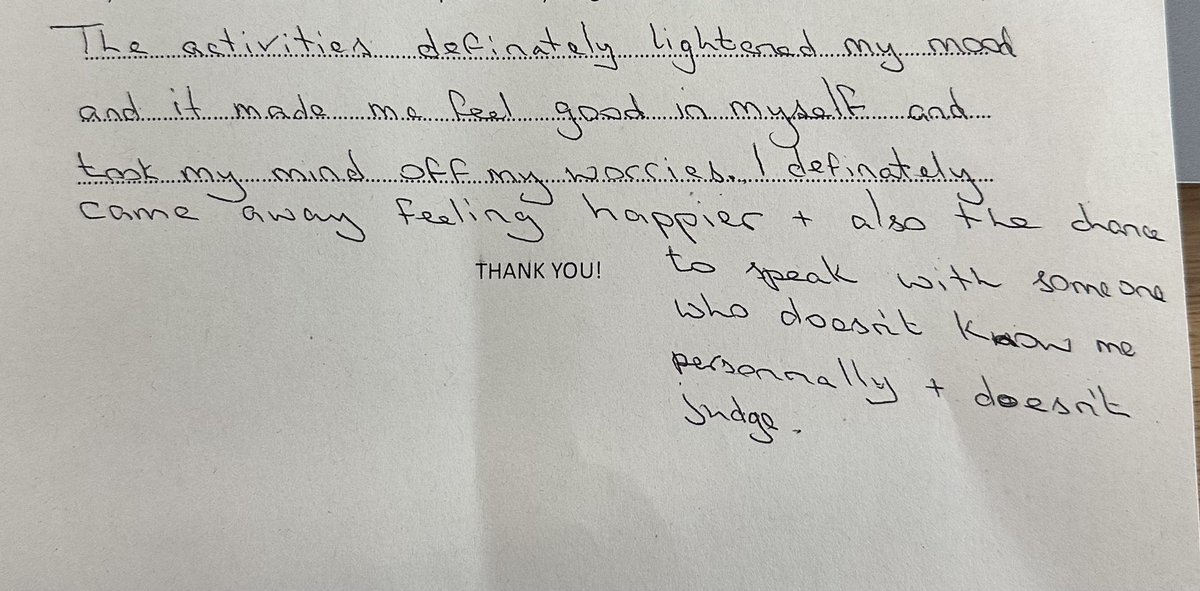 The activities definately lightened my mood
and it made me feel good in myself and
took my mind off my worries. I definately
came away feeling happier + also the chance
THANK YOU!
to speak with someone
who doesn't know me
personnally + doesn't
judge.